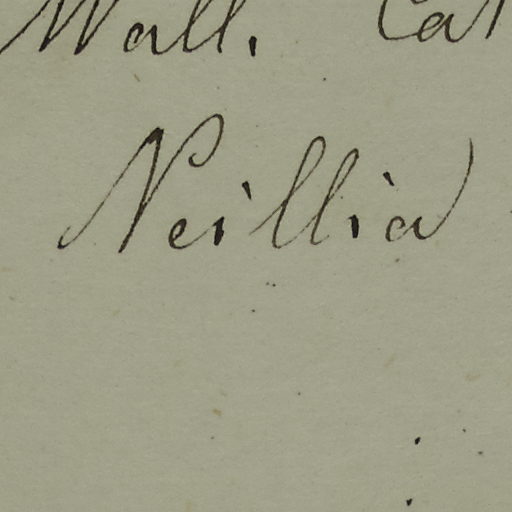 Wall. Cat
Neillia